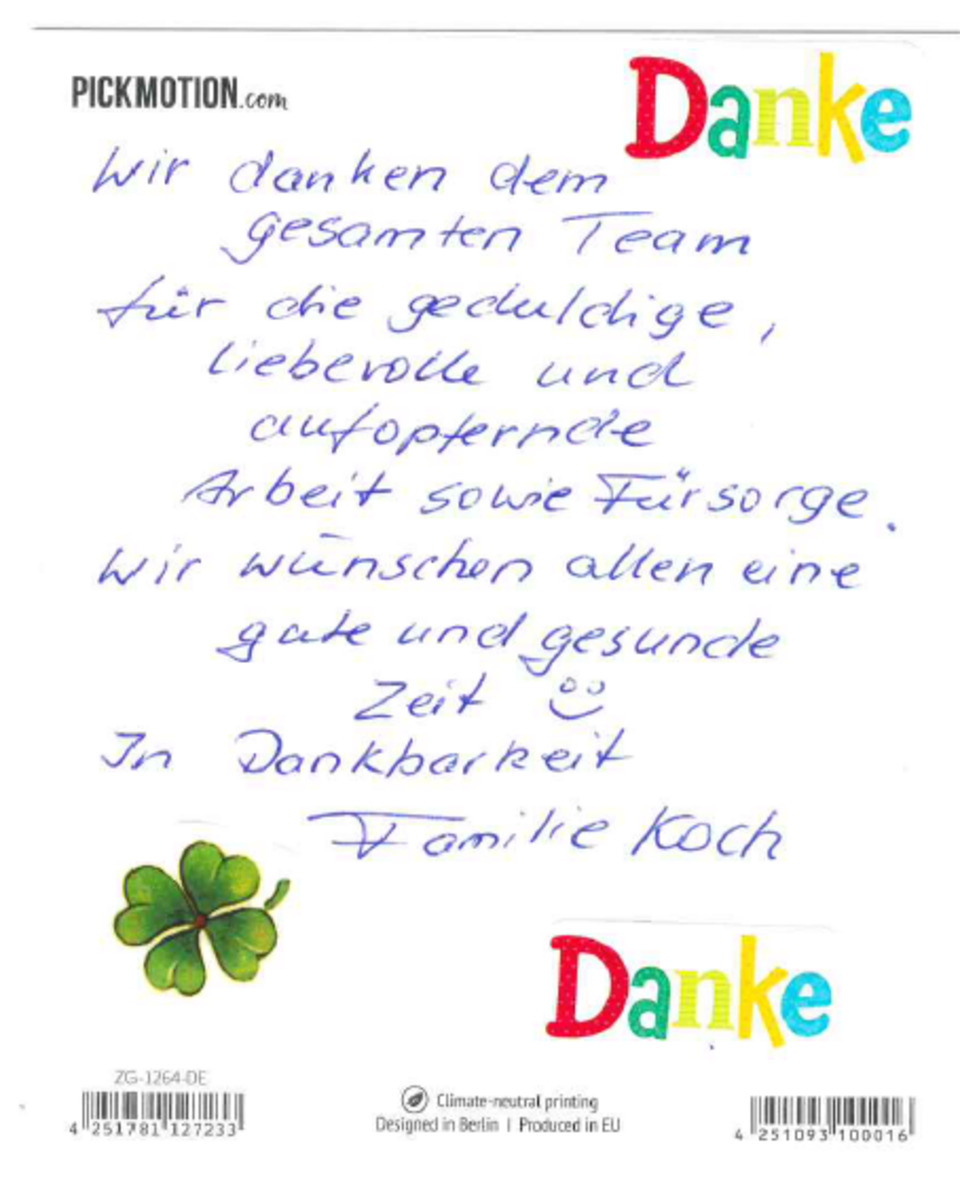 PICKMOTION.com
Danke
Wir danken dem
gesamten Team
für die geduldige,
liebevolle und
aufopfernde
Arbeit sowie Fürsorge.
Wir wünschen allen eine
gute und gesunde
Zeit
In Dankbarkeit
Familie Koch
Danke
ZG-1264-DE
4 251781 127233
Climate-neutral printing
Designed in Berlin | Produced in EU
4 251093 100016